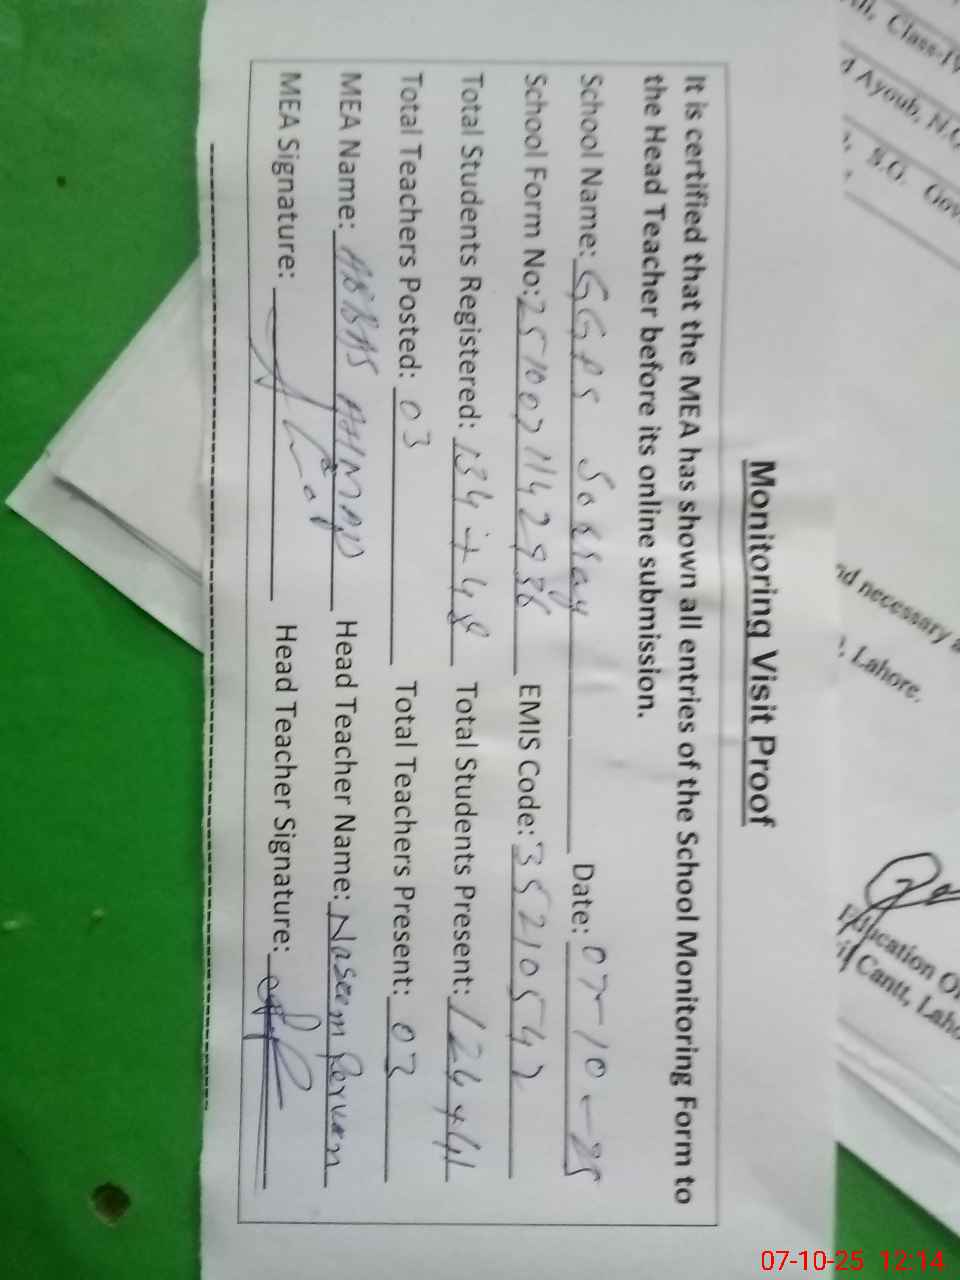 Monitoring Visit Proof
It is certified that the MEA has shown all entries of the School Monitoring Form to
the Head Teacher before its online submission.
School Name: GGPS Date: 07-10-25
School Form No: EMIS Code: 35210542
Total Students Registered: 134+48 Total Students Present: 124+41
Total Teachers Posted: 03 Total Teachers Present: 03
MEA Name: ABBAS AHMAD Head Teacher Name: Naseem Perveen
MEA Signature: Head Teacher Signature:
Class-IV
Ayoub, N.Q
S.O. Gov
nd necessary a
Lahore.
Education Of
Cantt, Laho
07-10-25 12:14